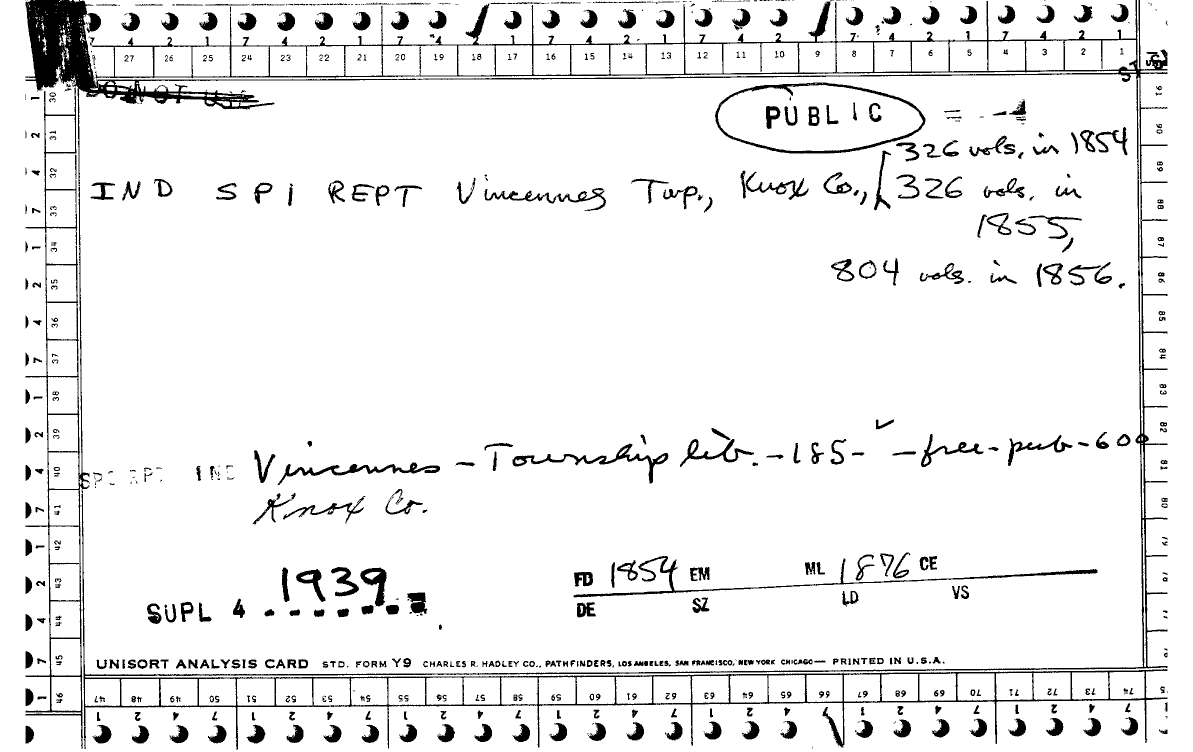 7 4 2 1 7 4 2 1 7 4 2 1 7 4 2 1 7 4 2 1 7 4 2 1
27 26 25 24 23 22 21 20 19 18 17 16 15 14 13 12 11 10 9 8 7 6 5 4 3 2 1
DO NOT USE
PUBLIC
326 vols. in 1854
IND SPI REPT Vincennes Twp., Knox Co., 326 vols. in
1855,
804 vols. in 1856.
SPI RPT IND Vincennes - Township lib. - 185- - free - pub - 600
Knox Co.
1939
SUPL 4
FD 1854 EM ML 1876 CE
DE SZ LD VS
UNISORT ANALYSIS CARD STD. FORM Y9 CHARLES R. HADLEY CO., PATHFINDERS, LOS ANGELES, SAN FRANCISCO, NEW YORK CHICAGO — PRINTED IN U.S.A.
47 48 49 50 51 52 53 54 55 56 57 58 59 60 61 62 63 64 65 66 67 68 69 70 71 72 73 74